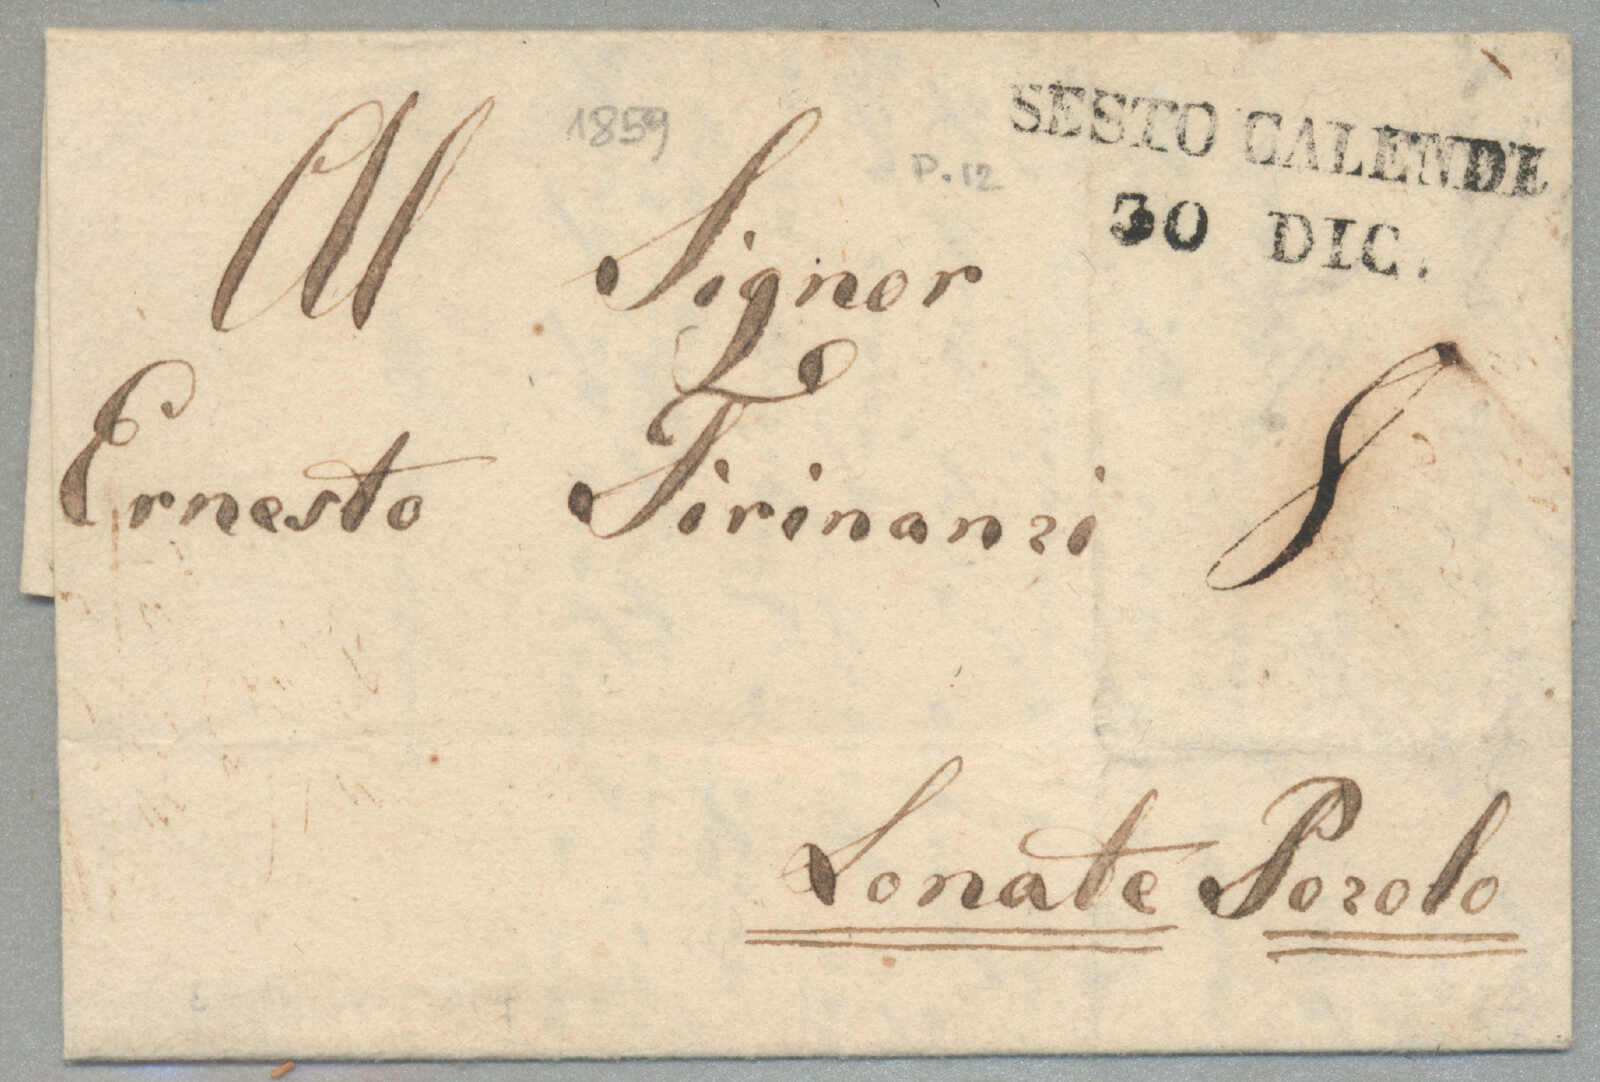 1859
P.12
SESTO CALENDE
30 DIC.
Al Signor
Ernesto Tirinanzi
8
Lonate Pozolo